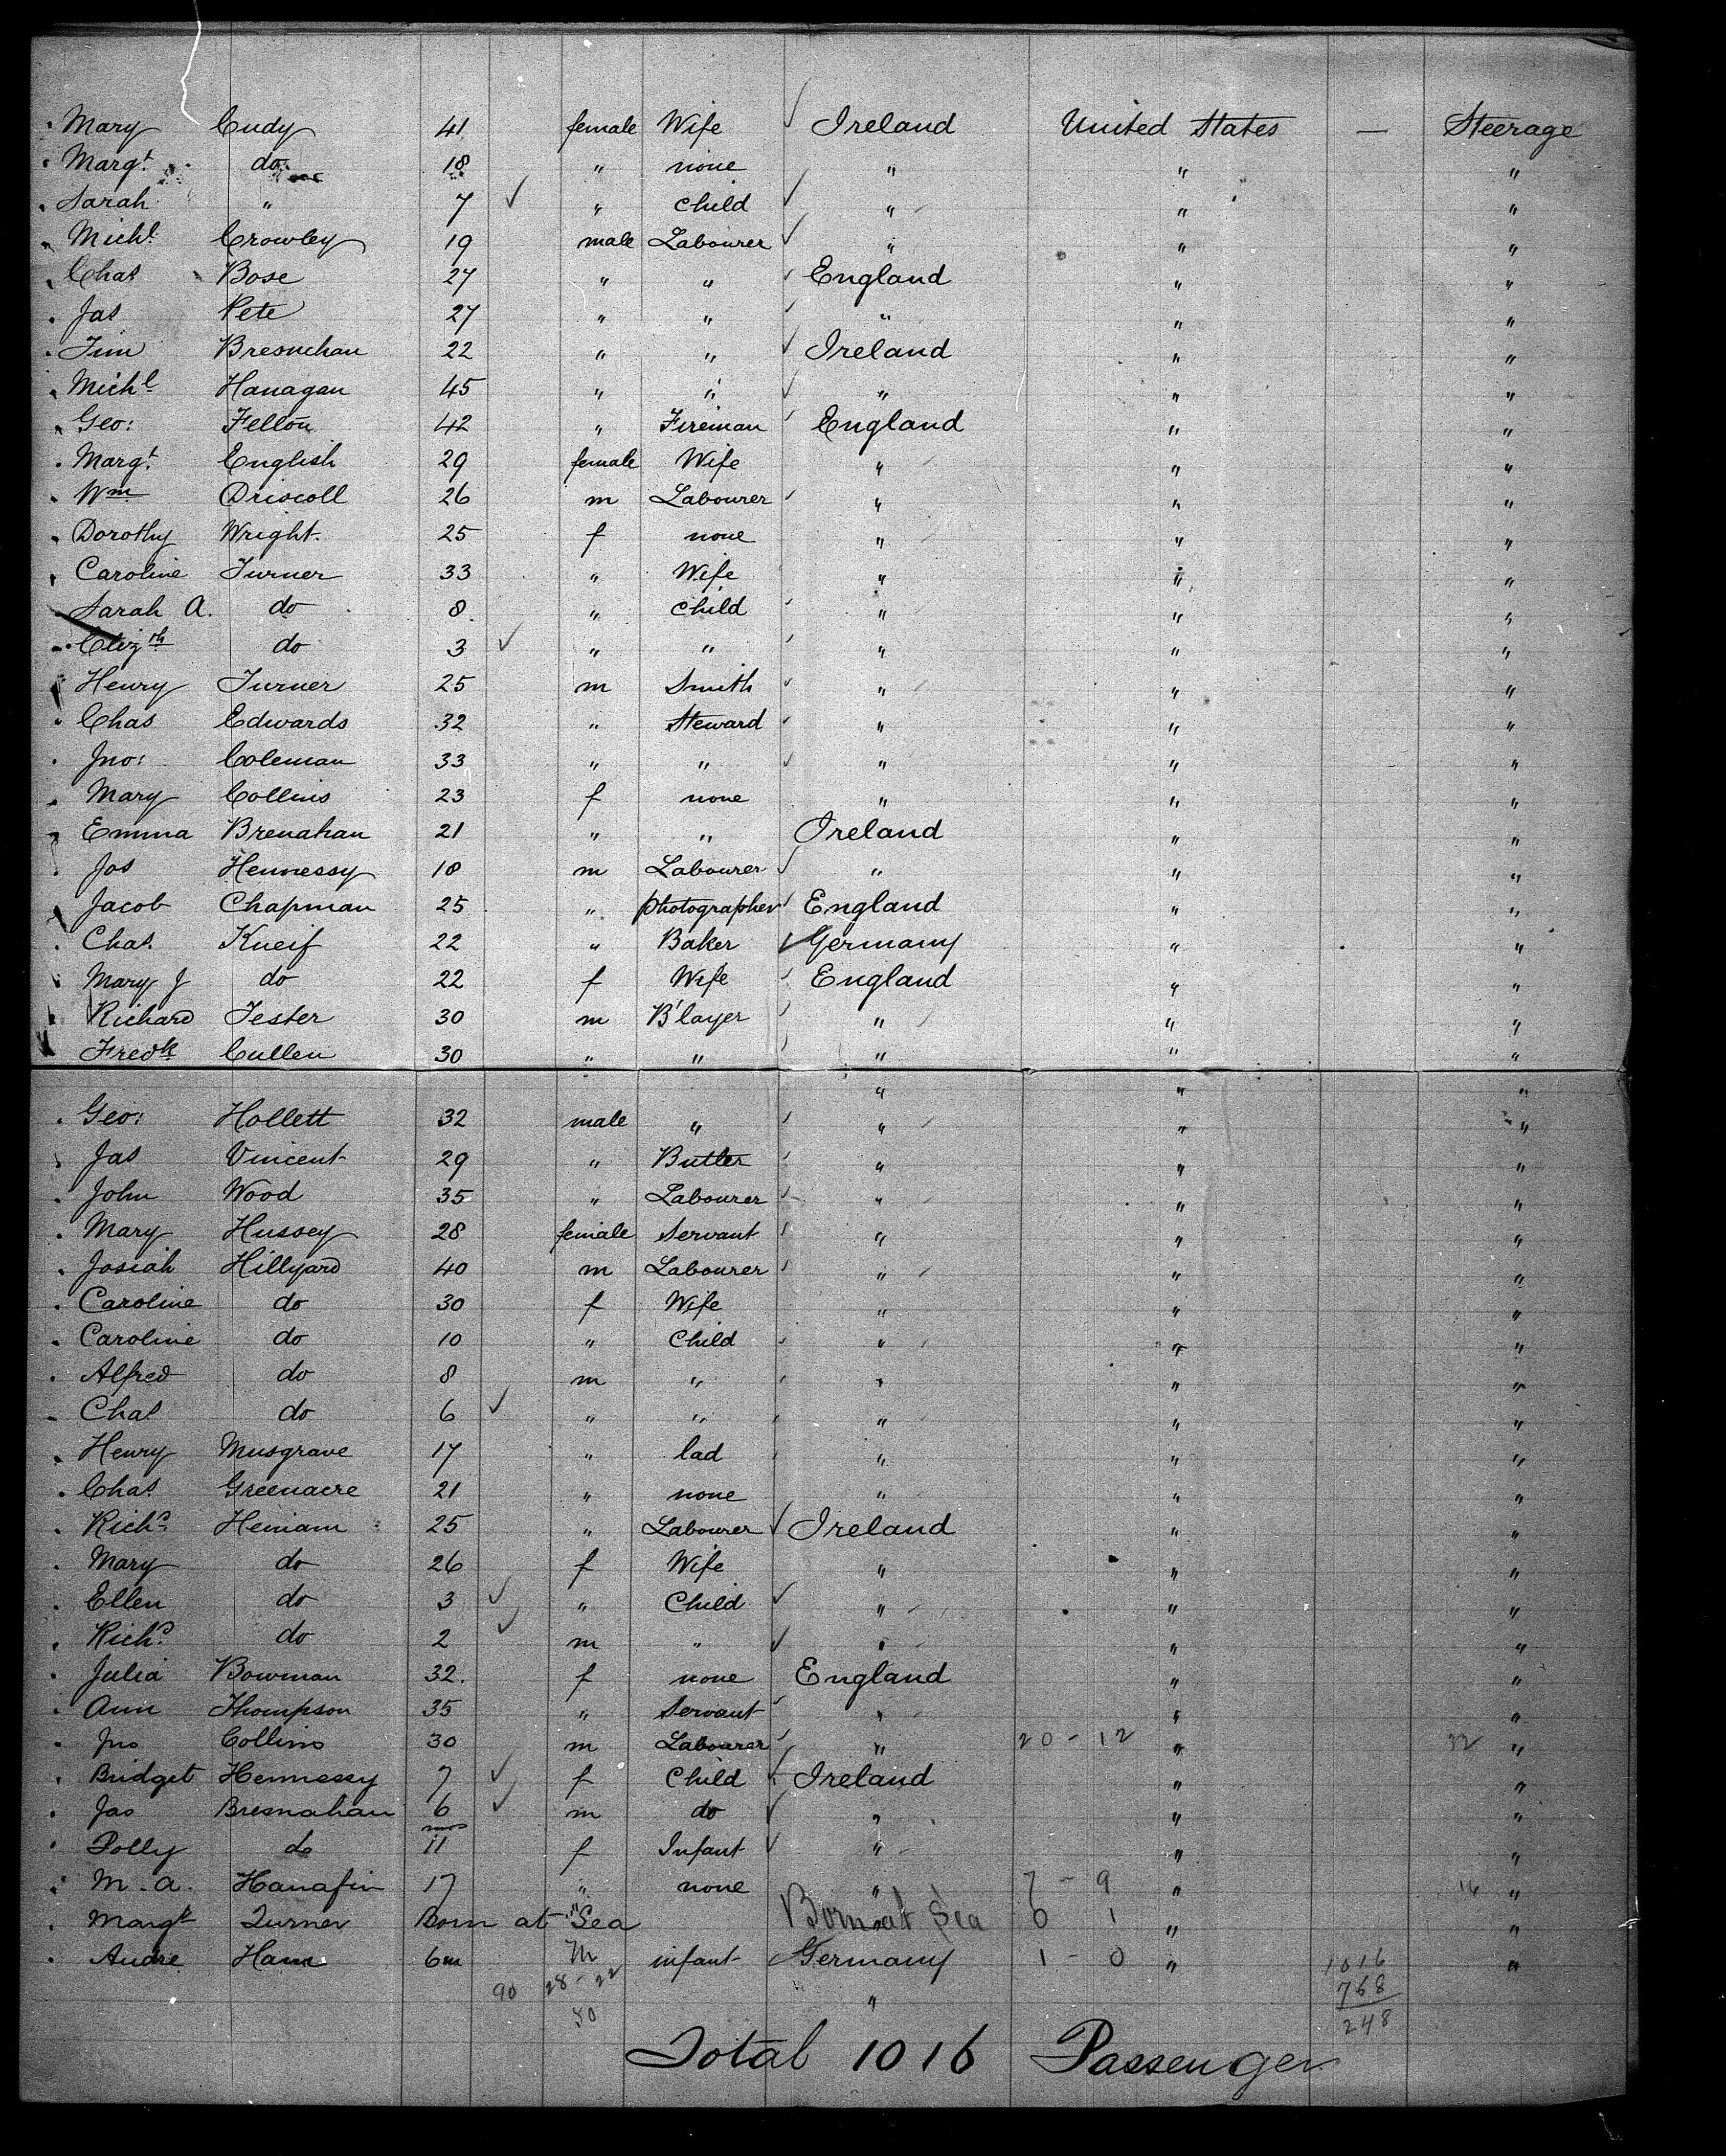 Mary Cudy 41 female Wife ✓ Ireland United States — Steerage
Margt. do 18 " none " " "
Sarah " 7 ✓ " child ✓ " " "
Michl. Crowley 19 male Labourer ✓ " " "
Chas Bose 27 " " ✓ England " "
Jas Pete 27 " " ✓ " " "
Jim Bresnehan 22 " " ✓ Ireland " "
Michl Hanagan 45 " " ✓ " " "
Geo: Fellon 42 " Fireman ✓ England " "
Margt. English 29 female Wife " " "
Wm Driscoll 26 m Labourer ✓ " " "
Dorothy Wright. 25 f none " " "
Caroline Turner 33 " Wife " " "
Sarah A. do 8 " child ✓ " " "
Elizth do 3 ✓ " " ✓ " " "
Henry Turner 25 m Smith ✓ " " "
Chas Edwards 32 " Steward ✓ " " "
Jno: Coleman 33 " " ✓ " " "
Mary Collins 23 f none " " "
Emma Brenahan 21 " " Ireland " "
Jos Hennessy 18 m Labourer ✓ " " "
Jacob Chapman 25 " photographer ✓ England " "
Chas. Kneif 22 " Baker ✓ Germany " "
Mary J do 22 f Wife ✓ England " "
Richard Tester 30 m B'layer ✓ " " "
Fredk Cullen 30 " " ✓ " " "
" " "
Geo: Hollett 32 male " ✓ " " "
Jas Vincent 29 " Butler ✓ " " "
John Wood 35 " Labourer ✓ " " "
Mary Hussey 28 female Servant ✓ " " "
Josiah Hillyard 40 m Labourer ✓ " " "
Caroline do 30 f Wife " " "
Caroline do 10 " Child ✓ " " "
Alfred do 8 m " ✓ " " "
Chas do 6 ✓ " " " " "
Henry Musgrave 17 " lad " " "
Chas. Greenacre 21 " none " " "
Richd. Heniam 25 " Labourer ✓ Ireland " "
Mary do 26 f Wife " " "
Ellen do 3 ✓ " Child ✓ " " "
Richd. do 2 ✓ m " ✓ " " "
Julia Bowman 32. f none England " "
Ann Thompson 35 " Servant ✓ " " "
Jno Collins 30 m Labourer ✓ " 20 - 12 " 32 "
Bridget Hennessy 7 ✓ f Child ✓ Ireland " "
Jas Bresnahan 6 ✓ m do ✓ " " "
Polly do 11 mos f Infant ✓ " " "
M. A. Hanafin 17 " none " 7 - 9 " 16 "
Margt Turner Born at Sea " Born at Sea 0 1 " "
Andre Hans 6m M infant Germany 1 - 0 " 1016 "
90 28 - 22 " 768
50 248
Total 1016 Passenger